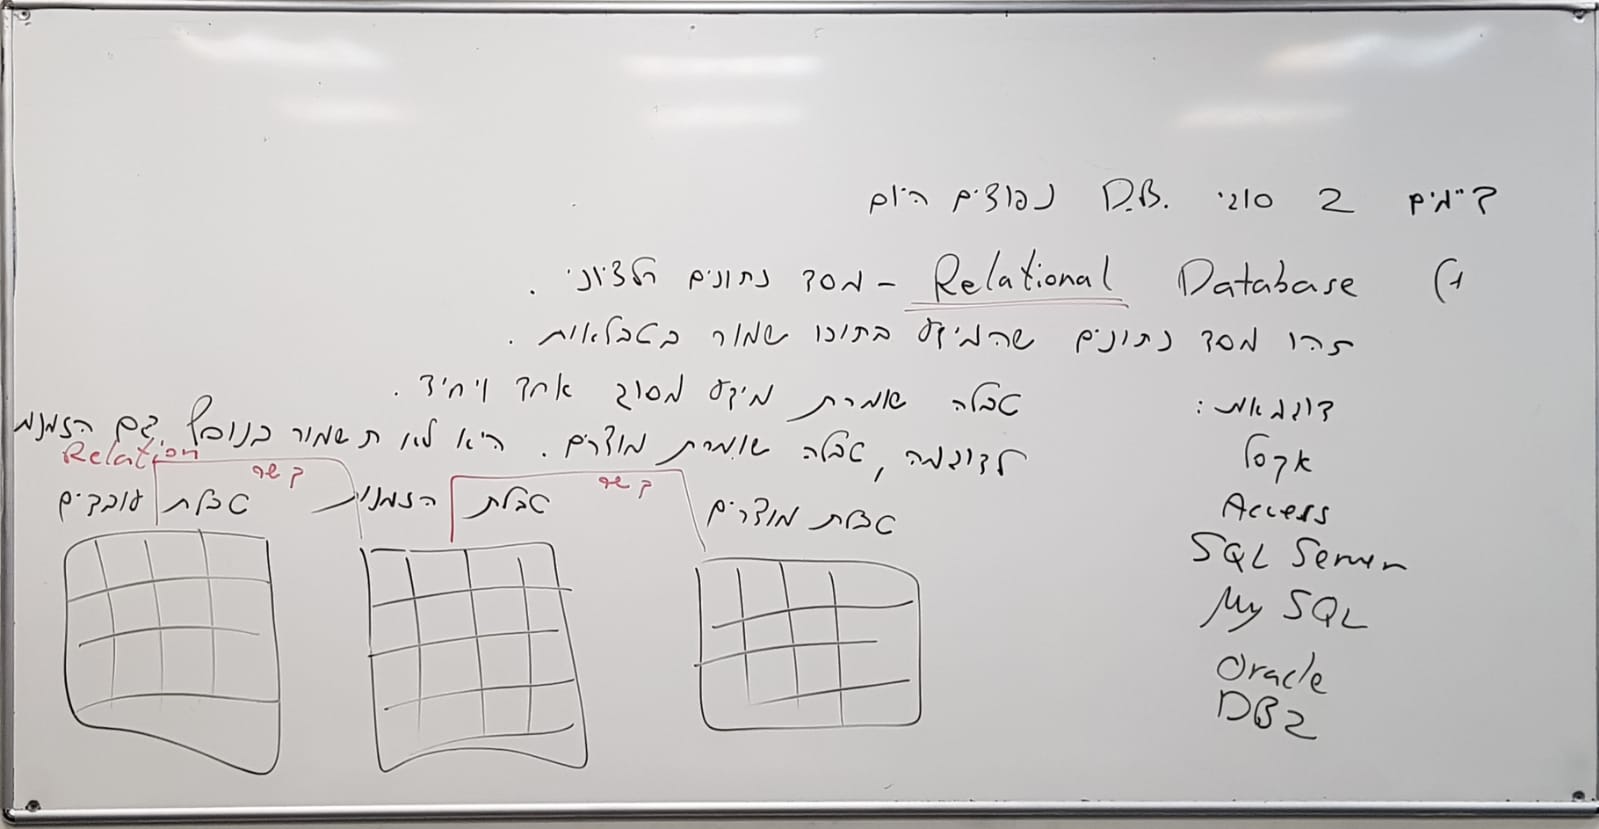 קיימים 2 סוגי D.B. נפוצים היום
1) Relational Database - מסד נתונים רלציוני.
זהו מסד נתונים שהמידע בתוכו שמור בטבלאות.
טבלה שומרת מידע מסוג אחד ויחיד.
לדוגמה, טבלה שומרת מוצרים. היא לא תשמור בנוסף גם הזמנות
דוגמאות:
אקסל
Access
SQL Server
My SQL
Oracle
DB2
Relation
קשר
קשר
טבלת מוצרים
טבלת הזמנות
טבלת עובדים